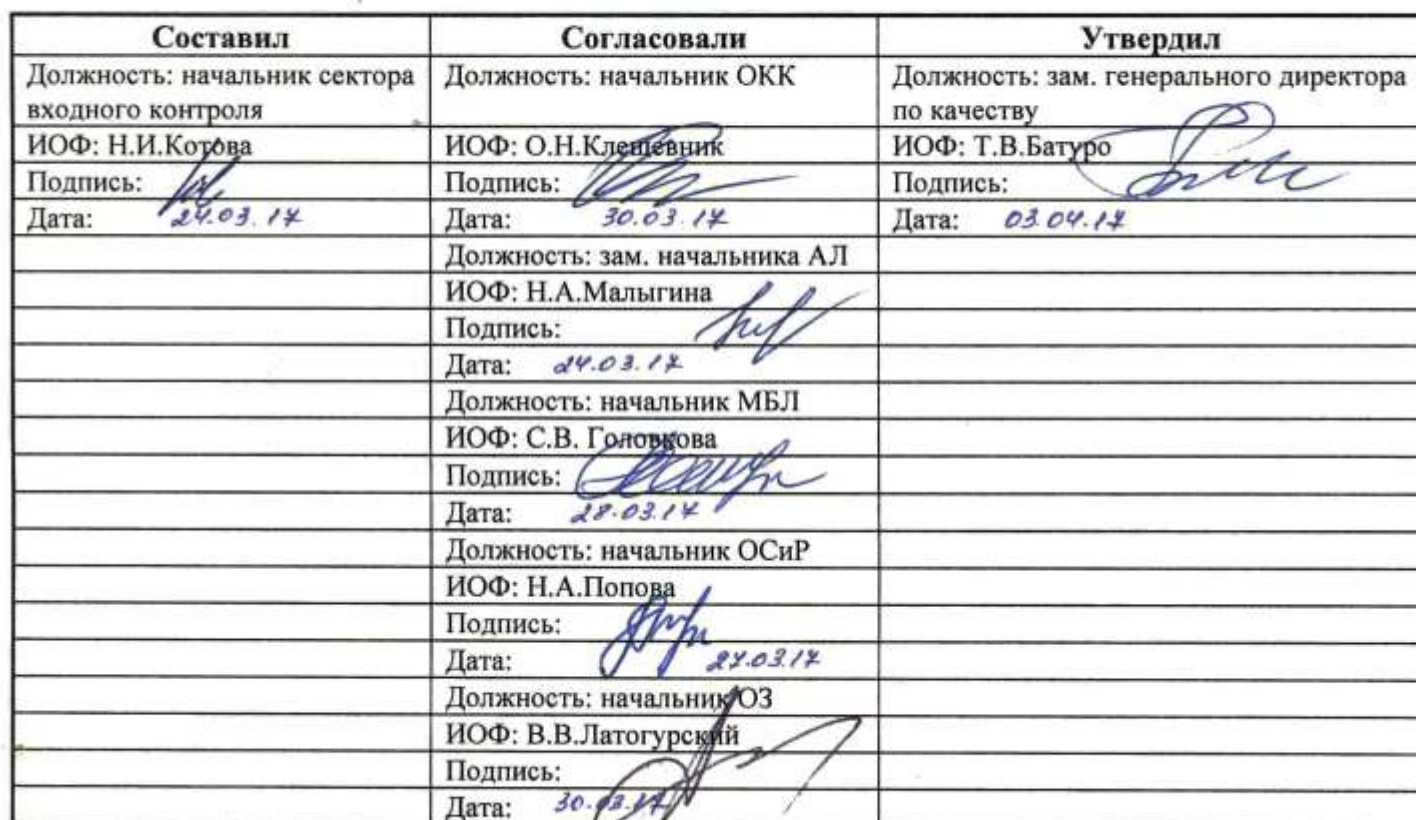 Составил Согласовали Утвердил
Должность: начальник сектора Должность: начальник ОКК Должность: зам. генерального директора
входного контроля по качеству
ИОФ: Н.И.Котова ИОФ: О.Н.Клещевник ИОФ: Т.В.Батуро
Подпись: Подпись: Подпись:
Дата: 24.03.17 Дата: 30.03.17 Дата: 03.04.17
Должность: зам. начальника АЛ
ИОФ: Н.А.Малыгина
Подпись:
Дата: 24.03.17
Должность: начальник МБЛ
ИОФ: С.В. Головкова
Подпись:
Дата: 28.03.17
Должность: начальник ОСиР
ИОФ: Н.А.Попова
Подпись:
Дата: 27.03.17
Должность: начальник ОЗ
ИОФ: В.В.Латогурский
Подпись:
Дата: 30.03.17